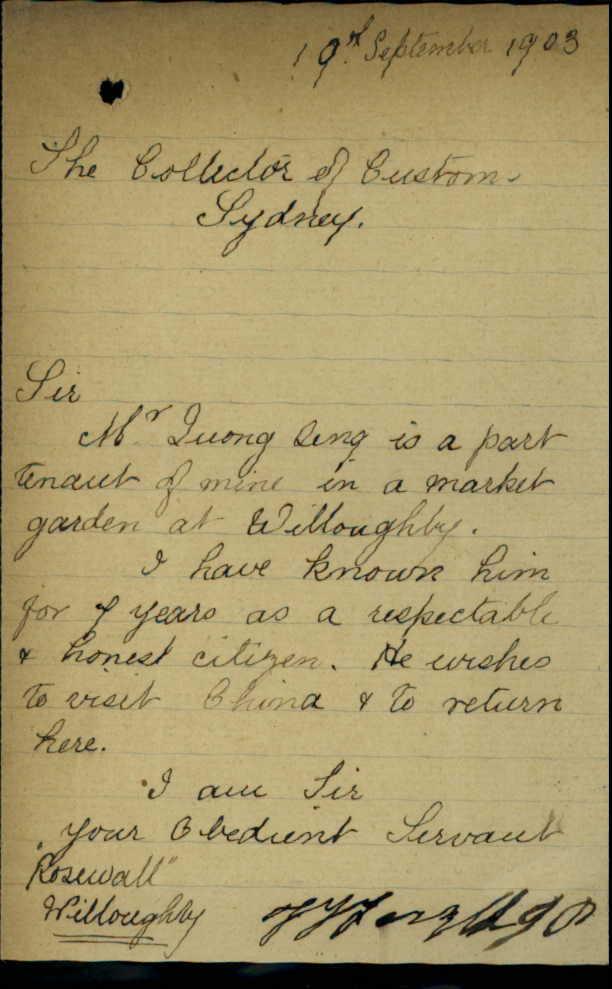 19th September 1903
The Collector of Customs
Sydney.
Sir
Mr Quong Sing is a part
tenant of mine in a market
garden at Willoughby.
I have known him
for 7 years as a respectable
& honest citizen. He wishes
to visit China & to return
here.
I am Sir
your Obedient Servant
"Rosewall"
Willoughby